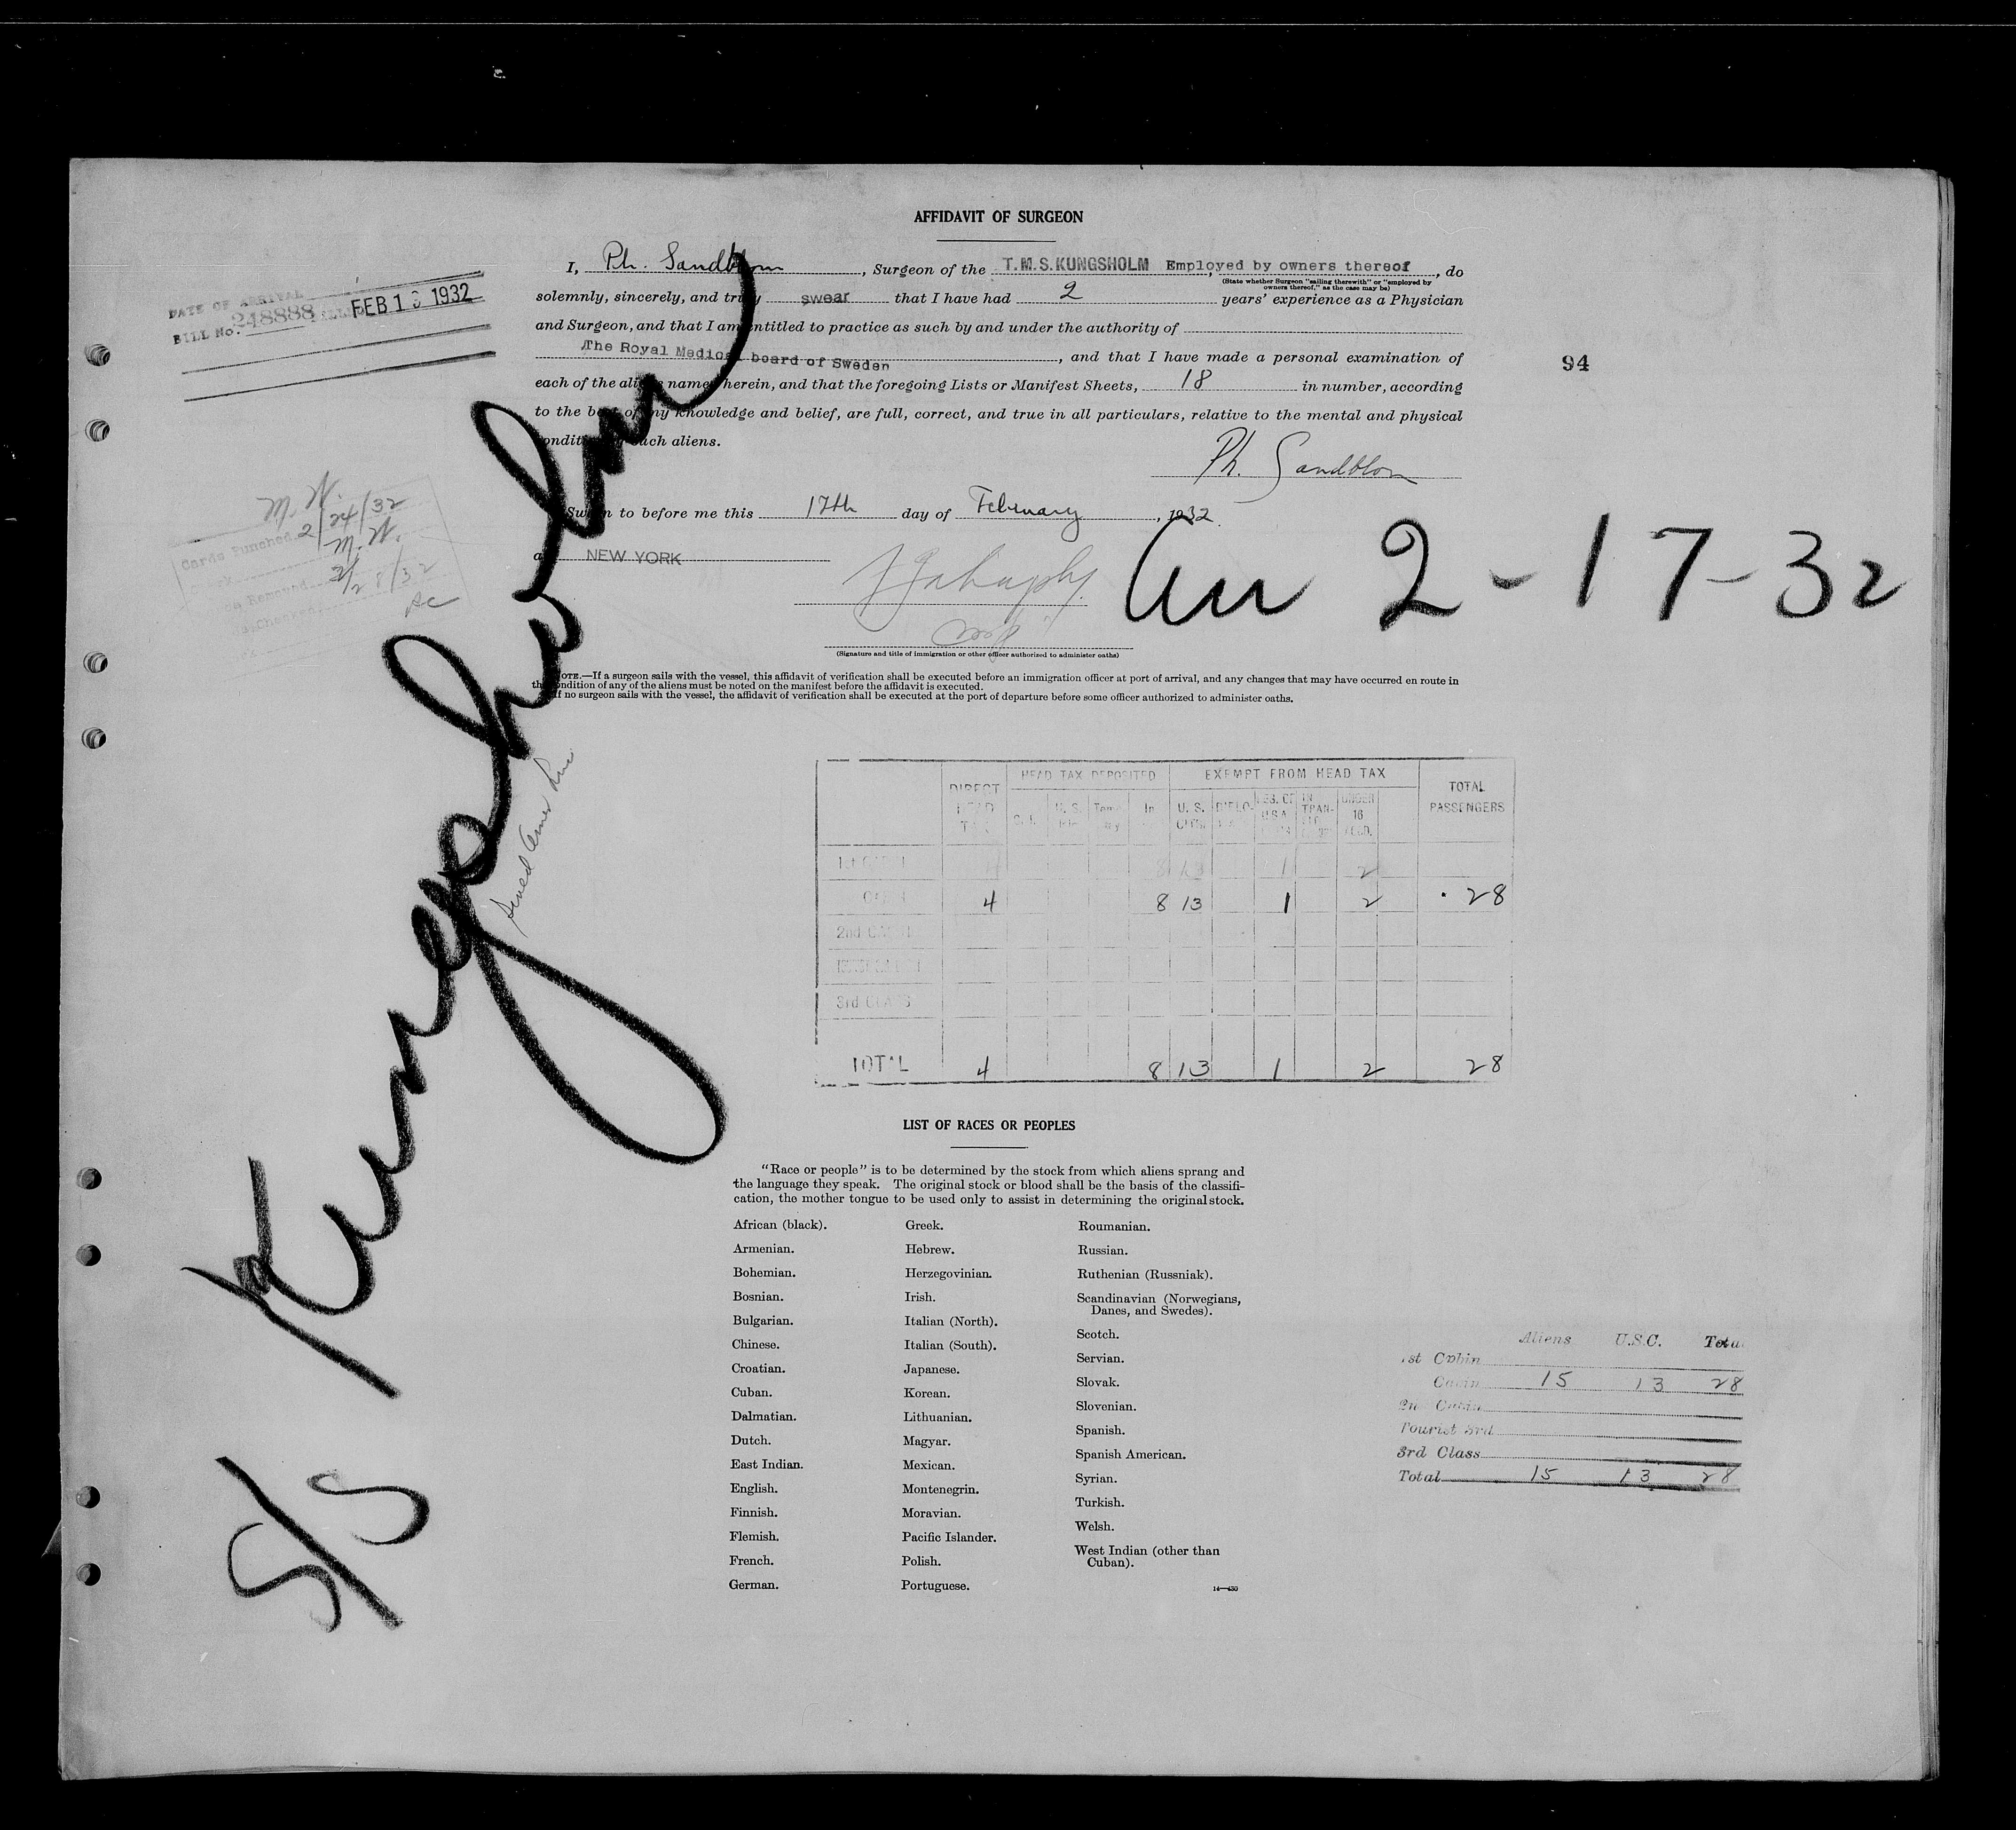 AFFIDAVIT OF SURGEON
I, Ph. Sandblom, Surgeon of the T.M.S. KUNGSHOLM Employed by owners thereof, do
(State whether Surgeon "sailing therewith" or "employed by
owners thereof," as the case may be)
solemnly, sincerely, and truly swear that I have had 2 years' experience as a Physician
and Surgeon, and that I am entitled to practice as such by and under the authority of
The Royal Medical board of Sweden, and that I have made a personal examination of
each of the aliens named herein, and that the foregoing Lists or Manifest Sheets, 18 in number, according
to the best of my knowledge and belief, are full, correct, and true in all particulars, relative to the mental and physical
condition of such aliens.
Ph. Sandblom
Sworn to before me this 17th day of February, 1932.
at NEW YORK
(Signature and title of immigration or other officer authorized to administer oaths)
NOTE.—If a surgeon sails with the vessel, this affidavit of verification shall be executed before an immigration officer at port of arrival, and any changes that may have occurred en route in
the condition of any of the aliens must be noted on the manifest before the affidavit is executed.
If no surgeon sails with the vessel, the affidavit of verification shall be executed at the port of departure before some officer authorized to administer oaths.
DATE OF ARRIVAL
BILL No. 248888
FEB 1 1932
94
Cards Punched 2/24/32
2/28/32
S/S Kungsholm
Arr 2-17-32
HEAD TAX DEPOSITED EXEMPT FROM HEAD TAX
DIRECT HEAD TAX U. S. In U. S. CITS. TOTAL PASSENGERS
UNDER 16
8 13 1 2
4 8 13 1 2 28
2nd
3rd CLASS
TOTAL 4 8 13 1 2 28
LIST OF RACES OR PEOPLES
"Race or people" is to be determined by the stock from which aliens sprang and
the language they speak. The original stock or blood shall be the basis of the classifi-
cation, the mother tongue to be used only to assist in determining the original stock.
African (black).
Armenian.
Bohemian.
Bosnian.
Bulgarian.
Chinese.
Croatian.
Cuban.
Dalmatian.
Dutch.
East Indian.
English.
Finnish.
Flemish.
French.
German.
Greek.
Hebrew.
Herzegovinian.
Irish.
Italian (North).
Italian (South).
Japanese.
Korean.
Lithuanian.
Magyar.
Mexican.
Montenegrin.
Moravian.
Pacific Islander.
Polish.
Portuguese.
Roumanian.
Russian.
Ruthenian (Russniak).
Scandinavian (Norwegians,
Danes, and Swedes).
Scotch.
Servian.
Slovak.
Slovenian.
Spanish.
Spanish American.
Syrian.
Turkish.
Welsh.
West Indian (other than
Cuban).
14—430
Aliens U.S.C. Total
1st Cabin
Cabin 15 13 28
2nd Cabin
Tourist 3rd
3rd Class
Total 15 13 28